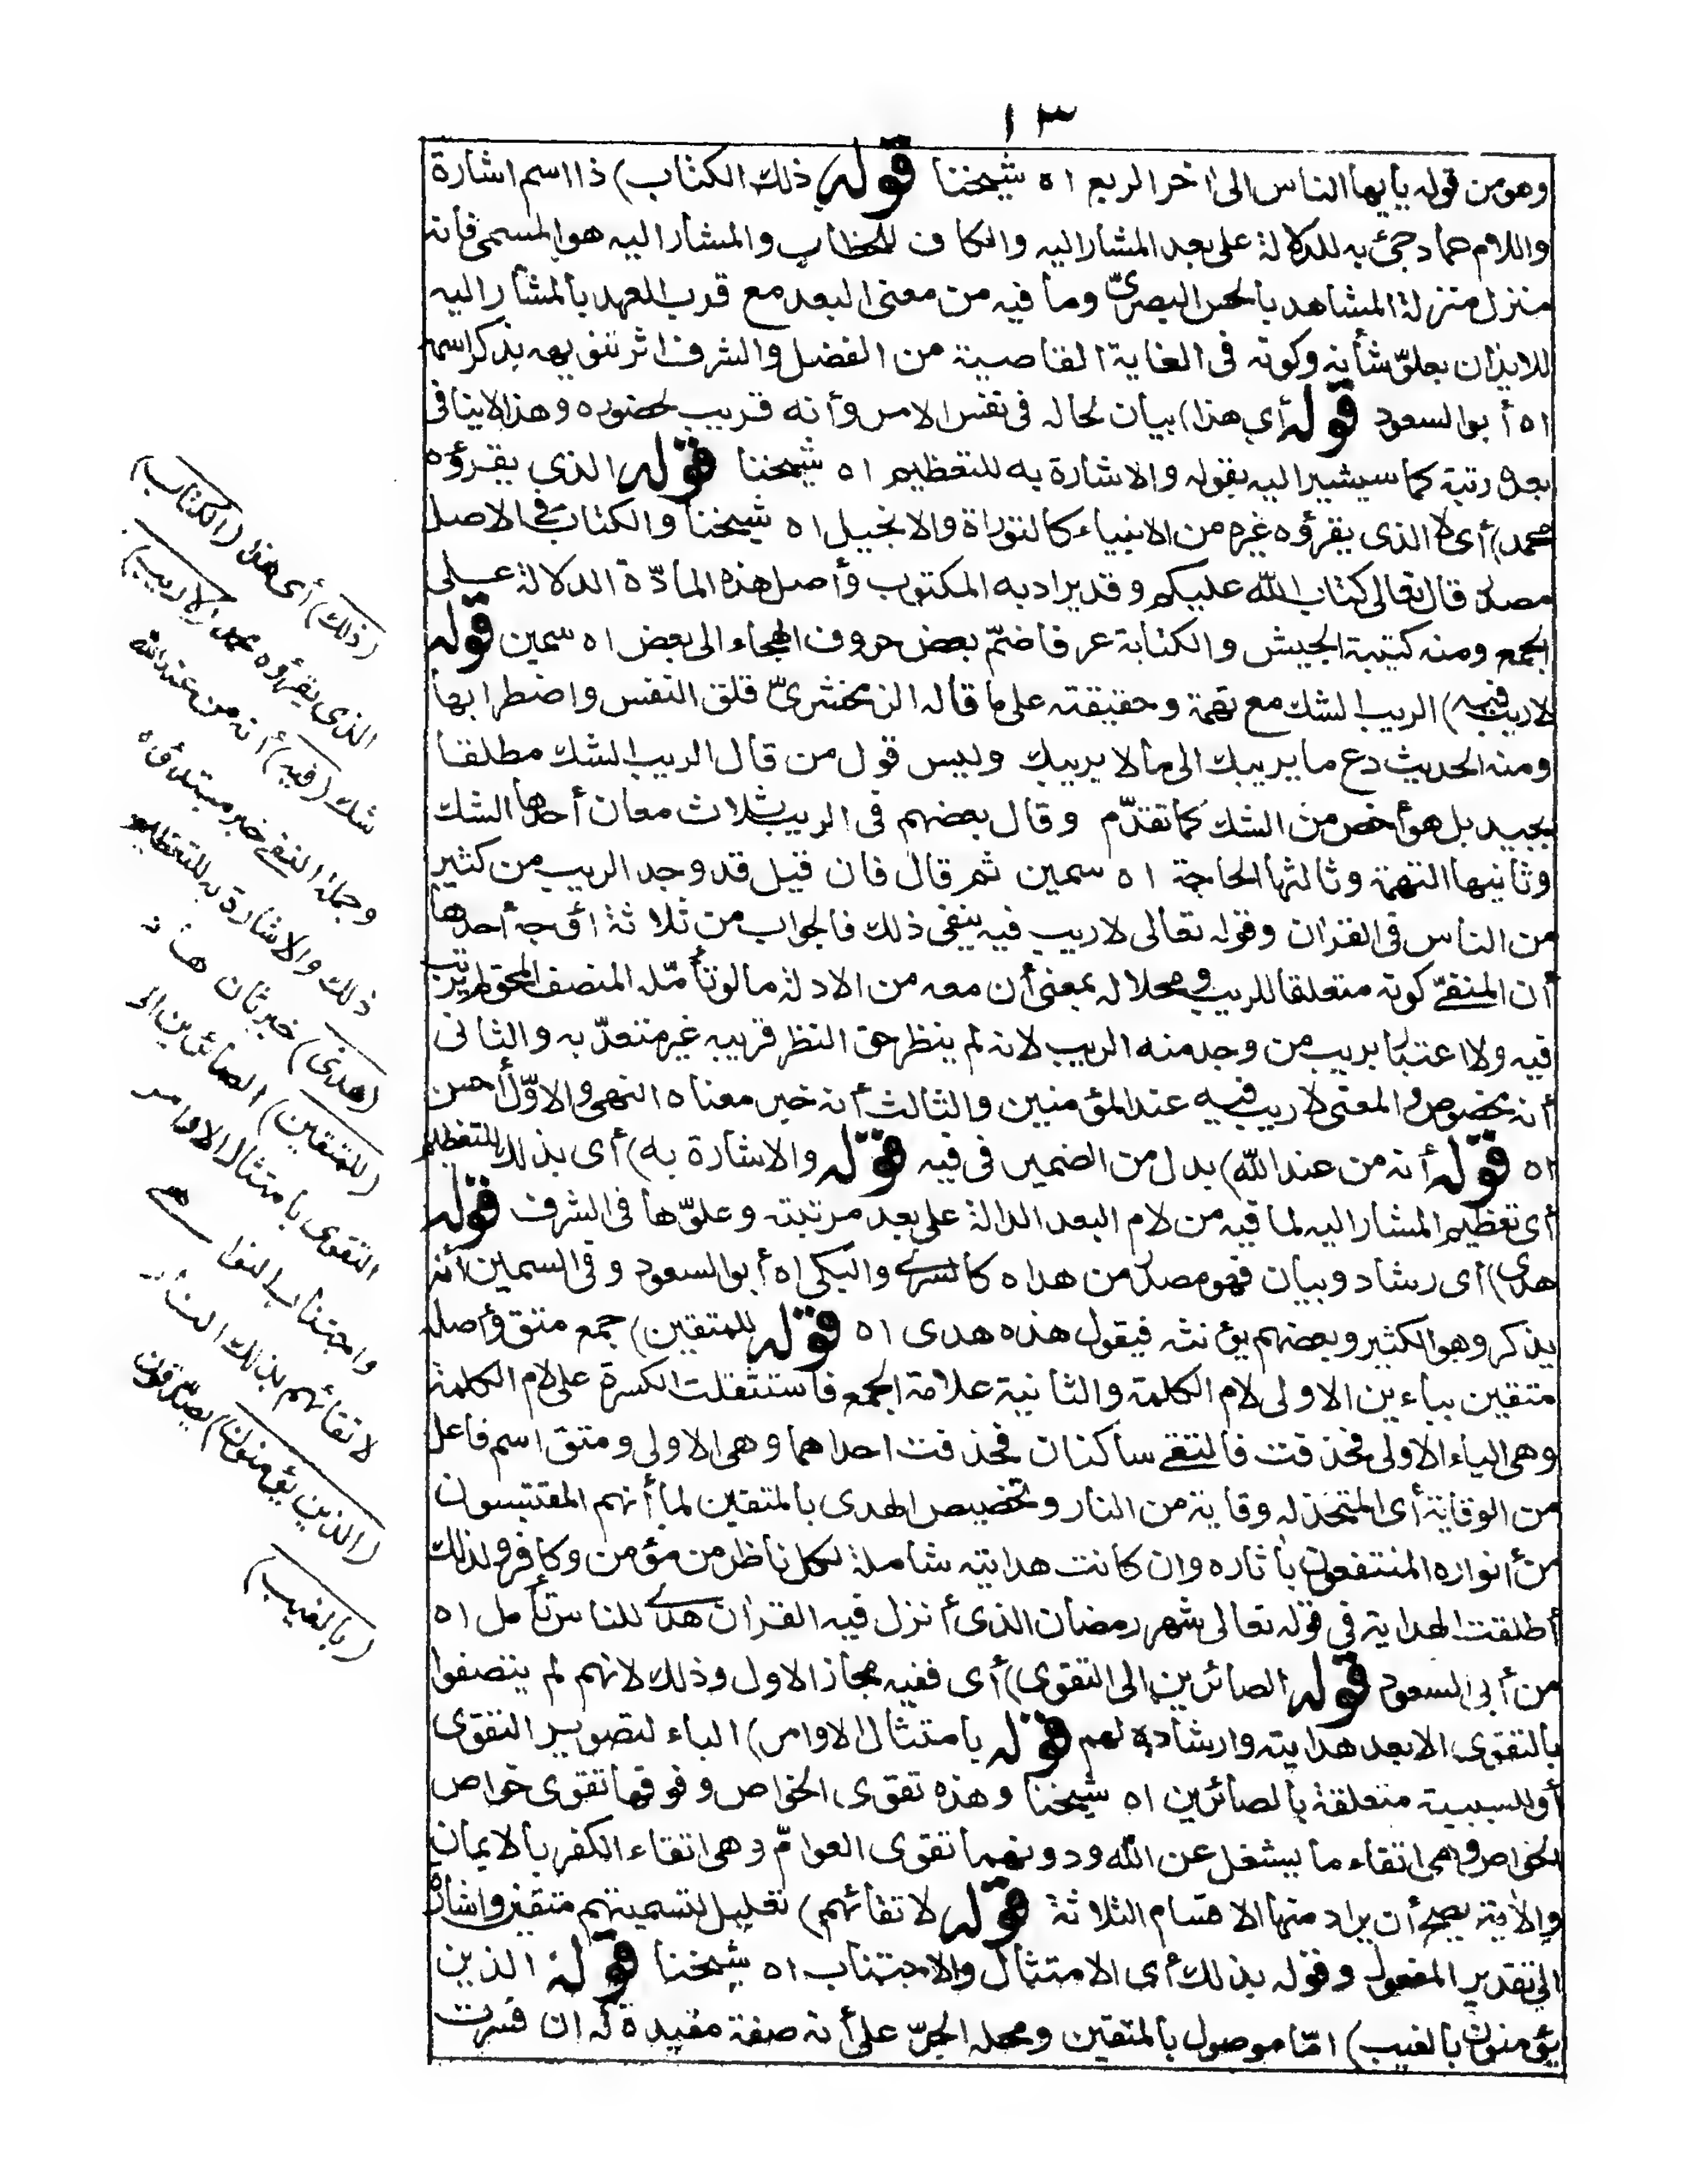 ١٣
وهو من قوله يا يها الناس الى اخر الربع اه شيخنا قوله ذلك الكتاب) ذا اسم اشارة
واللام عماد جئ به للدلالة على بعد المشار اليه والكاف للخطاب والمشار اليه هو المسمى فانه
منزل منزلة المشاهد بالحس البصرىّ وما فيه من معنى البعد مع قرب العهد بالمشار اليه
للايذان بعلوّ شأنه وكونه فى الغاية القاصية من الفضل والشرف اثر تنويهه بذكر اسمه
اه أبو السعود قوله أى هذا) بيان لحاله فى نفس الامر وأنه قريب لحضوره وهذا لاينافى
بعده رتبة كما سيشير اليه بقوله والاشارة به للتعظيم اه شيخنا قوله الذى يقرؤه
محمد) أى لا الذى يقرؤه غيره من الانبياء كالتوراة والانجيل اه شيخنا والكتاب فى الاصل
مصدر قال تعالى كتاب الله عليكم وقد يراد به المكتوب وأصل هذه المادّة الدلالة على
الجمع ومنه كتيبة الجيش والكتابة عرفا ضمّ بعض حروف الهجاء الى بعض اه سمين قوله
لاريب فيه) الريب الشك مع تهمة وحقيقته على ما قاله الزمخشرىّ قلق النفس واضطرابها
ومنه الحديث دع ما يريبك الى ما لا يريبك وليس قول من قال الريب الشك مطلقا
بجيد بل هو أخص من الشك كما تقدّم وقال بعضهم فى الريب ثلاث معان أحدها الشك
وثانيها التهمة وثالثها الحاجة اه سمين ثم قال فان قيل قد وجد الريب من كثير
من الناس فى القران وقوله تعالى لاريب فيه ينفى ذلك فالجواب من ثلاثة أوجه أحدها
أن المنفىّ كونه متعلقا للريب ومحلا له بمعنى أن معه من الادلة ما لو تأمّله المنصف المحق لم يرتب
فيه ولا اعتبار بريب من وجد منه الريب لانه لم ينظر حق النظر فريبه غير معتدّ به والثانى
أنه مخصوص والمعنى لا ريب فيه عند المؤمنين والثالث أنه خبر معناه النهى والاوّل أحسن
اه قوله أنه من عند الله) بدل من الضمير فى فيه قوله والاشارة به) أى بذلك للتعظيم
أى تعظيم المشار اليه لما فيه من لام البعد الدالة على بعد مرتبته وعلوّها فى الشرف قوله
هدى) أى رشاد وبيان فهو مصدر من هداه كالسرى والبكى اه أبو السعود وفى السمين أنه
يذكر وهو الكثير وبعضهم يؤنثه فيقول هذه هدى اه قوله للمتقين) جمع متق وأصله
متقين بياءين الاولى لام الكلمة والثانية علامة الجمع فاستثقلت الكسرة على لام الكلمة
وهى الياء الاولى فحذفت فالتقى ساكنان فحذفت احداهما وهى الاولى ومتق اسم فاعل
من الوقاية أى المتخذ له وقاية من النار وتخصيص الهدى بالمتقين لما أنهم المقتبسون
من أنواره المنتفعون باثاره وان كانت هدايته شاملة لكل ناظر من مؤمن وكافر ولذلك
أطلقت الهداية فى قوله تعالى شهر رمضان الذى أنزل فيه القران هدى للناس تأمل اه
من أبى السعود قوله الصائرين الى التقوى) أى ففيه مجاز الاول وذلك لانهم لم يتصفوا
بالتقوى الا بعد هدايته وارشاده لهم قوله بامتثال الاوامر) الباء لتصوير التقوى
أو للسببية متعلقة بالصائرين اه شيخنا وهذه تقوى الخواص وفوقها تقوى خواص
الخواص وهى اتقاء ما يشغل عن الله ودونهما تقوى العوامّ وهى اتقاء الكفر بالايمان
والاية يصح أن يراد منها الاقسام الثلاثة قوله لاتقائهم) تعليل لتسميتهم متقين واشارة
الى تقدير المفعول وقوله بذلك أى الامتثال والاجتناب اه شيخنا قوله الذين
يؤمنون بالغيب) امّا موصول بالمتقين ومحله الجرّ على أنه صفة مقيدة له ان فسرت
(ذلك) أى هذا (الكتاب)
الذى يقرؤه محمد (لاريب)
شك (فيه) أنه من عند الله
وجملة النفى خبر مبتدؤه
ذلك والاشارة به للتعظيم
(هدى) خبر ثان هاد
(للمتقين) الصائرين الى
التقوى بامتثال الاوامر
واجتناب النواهى
لاتقائهم بذلك النار
(الذين يؤمنون) يصدّقون
(بالغيب)